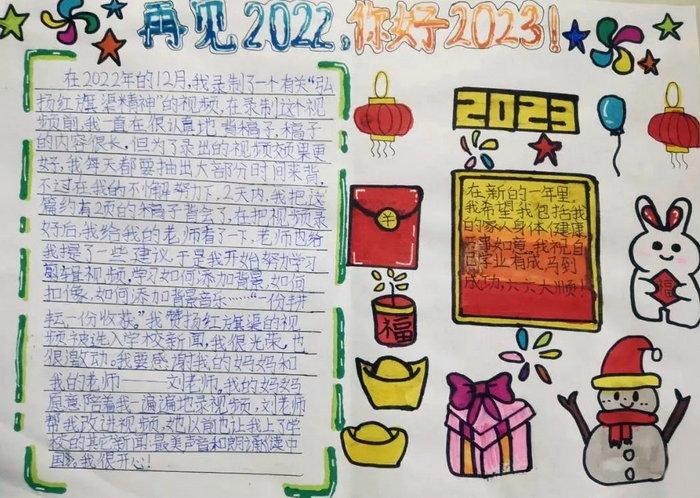 再见2022,你好2023!
在2022年的12月,我录制了一个有关“弘
扬红旗渠精神”的视频,在录制这个视
频前,我一直在很认真地背稿子,稿子
的内容很长,但为了录出的视频效果更
好,我每天都要抽出大部分时间来背,
不过在我的不懈努力下,2天内,我把这
篇约有2页的稿子背会了,在把视频录
好后,我给我的老师看了一下,老师也给
我提了一些建议,于是我开始努力学习
剪辑视频,学习如何添加背景,如何
扣像,如何添加背景音乐……“一份耕
耘一份收获。”我赞扬红旗渠的视
频被选入学校新闻,我很光荣,也
很激动。我要感谢我的妈妈和
我的老师——刘老师。我的妈妈
愿意陪着我一遍遍地录视频,刘老师
帮我改进视频,她以前也让我上了学
校的其它新闻:最美声音和朗诵读中
国》,我很开心!
2023
在新的一年里,
我希望我包括我
的家人身体健康
事如意。我祝自
己学业有成,马到
成功,六六大顺!
福
福